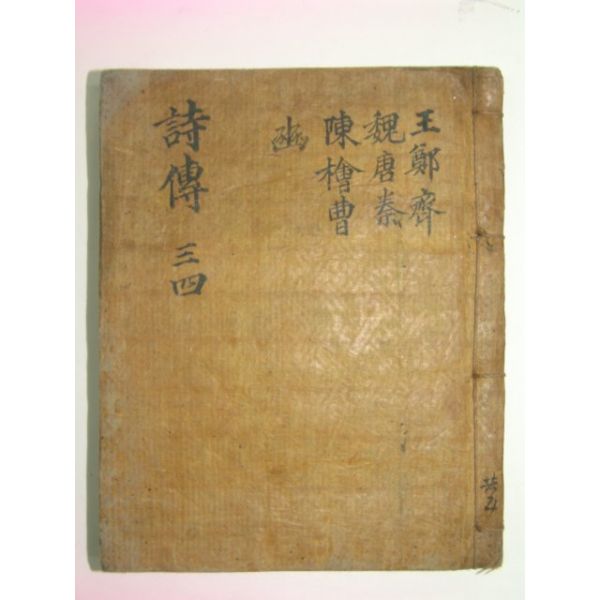 王鄭齊
魏唐秦
陳檜曹
豳
詩傳 三四